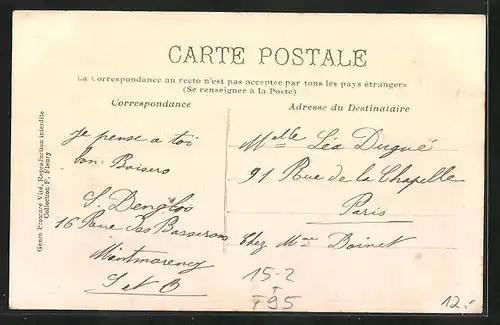 CARTE POSTALE
La Correspondance au recto n'est pas acceptée par tous les pays étrangers
(Se renseigner à la Poste)
Correspondance
Je pense a toi
bon Baisers
S. Denglos
16 Rue des Basserons
Montmorency
S et O
Adresse du Destinataire
Melle Léa Dugué
91 Rue de la Chapelle
Paris
Chez Mme Boinet
15-2
T95
12.-
Reproduction interdite
Collection F. Fleury